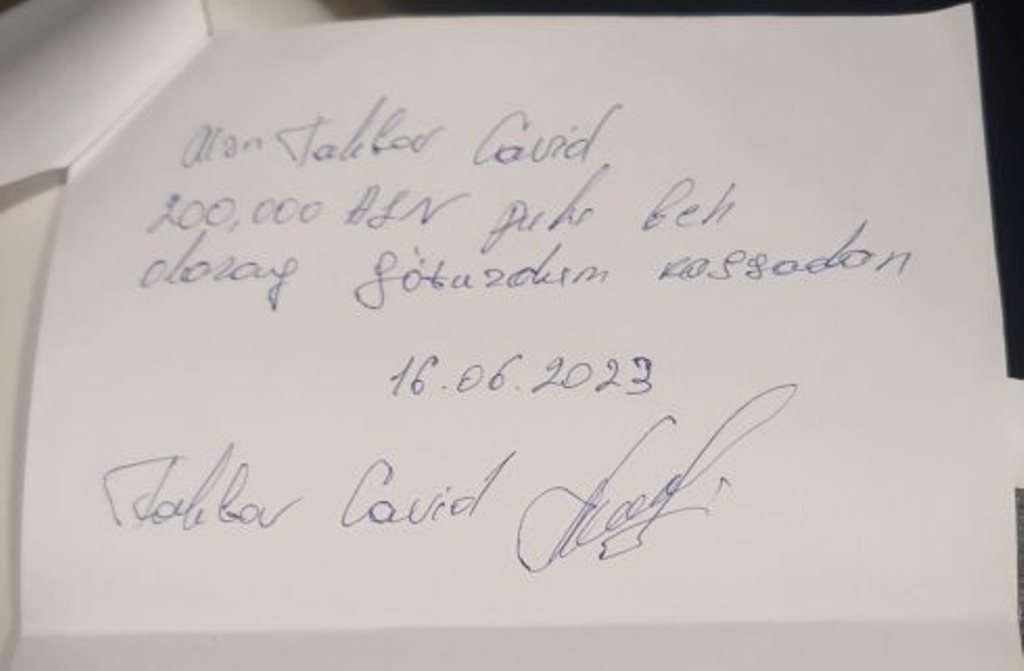 Mən Təkbar Cavid
200,000 AZN pulu beh
olaraq götürdüm kassadan
16.06.2023
Təkbar Cavid